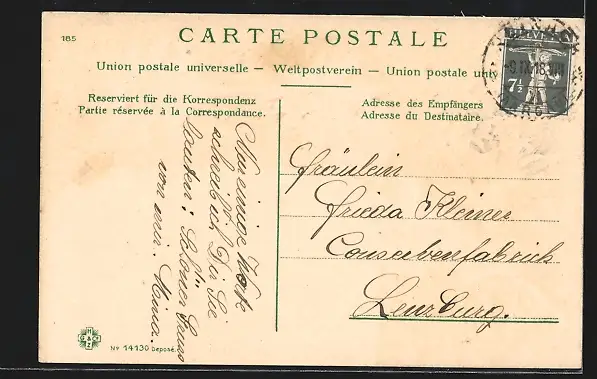 185
CARTE POSTALE
Union postale universelle – Weltpostverein – Union postale univ
Reserviert für die Korrespondenz
Partie réservée à la Correspondance.
Adresse des Empfängers
Adresse du Destinataire.
HELVETIA
7½
-9.IX.18
Nur einige Worte
schreib ich Dir Sie
lauten: Schöner Gruss
von mir. Mina.
Fräulein
Frieda Kleiner
Conservenfabrick
Lenzburg.
No 14130 Deposé.